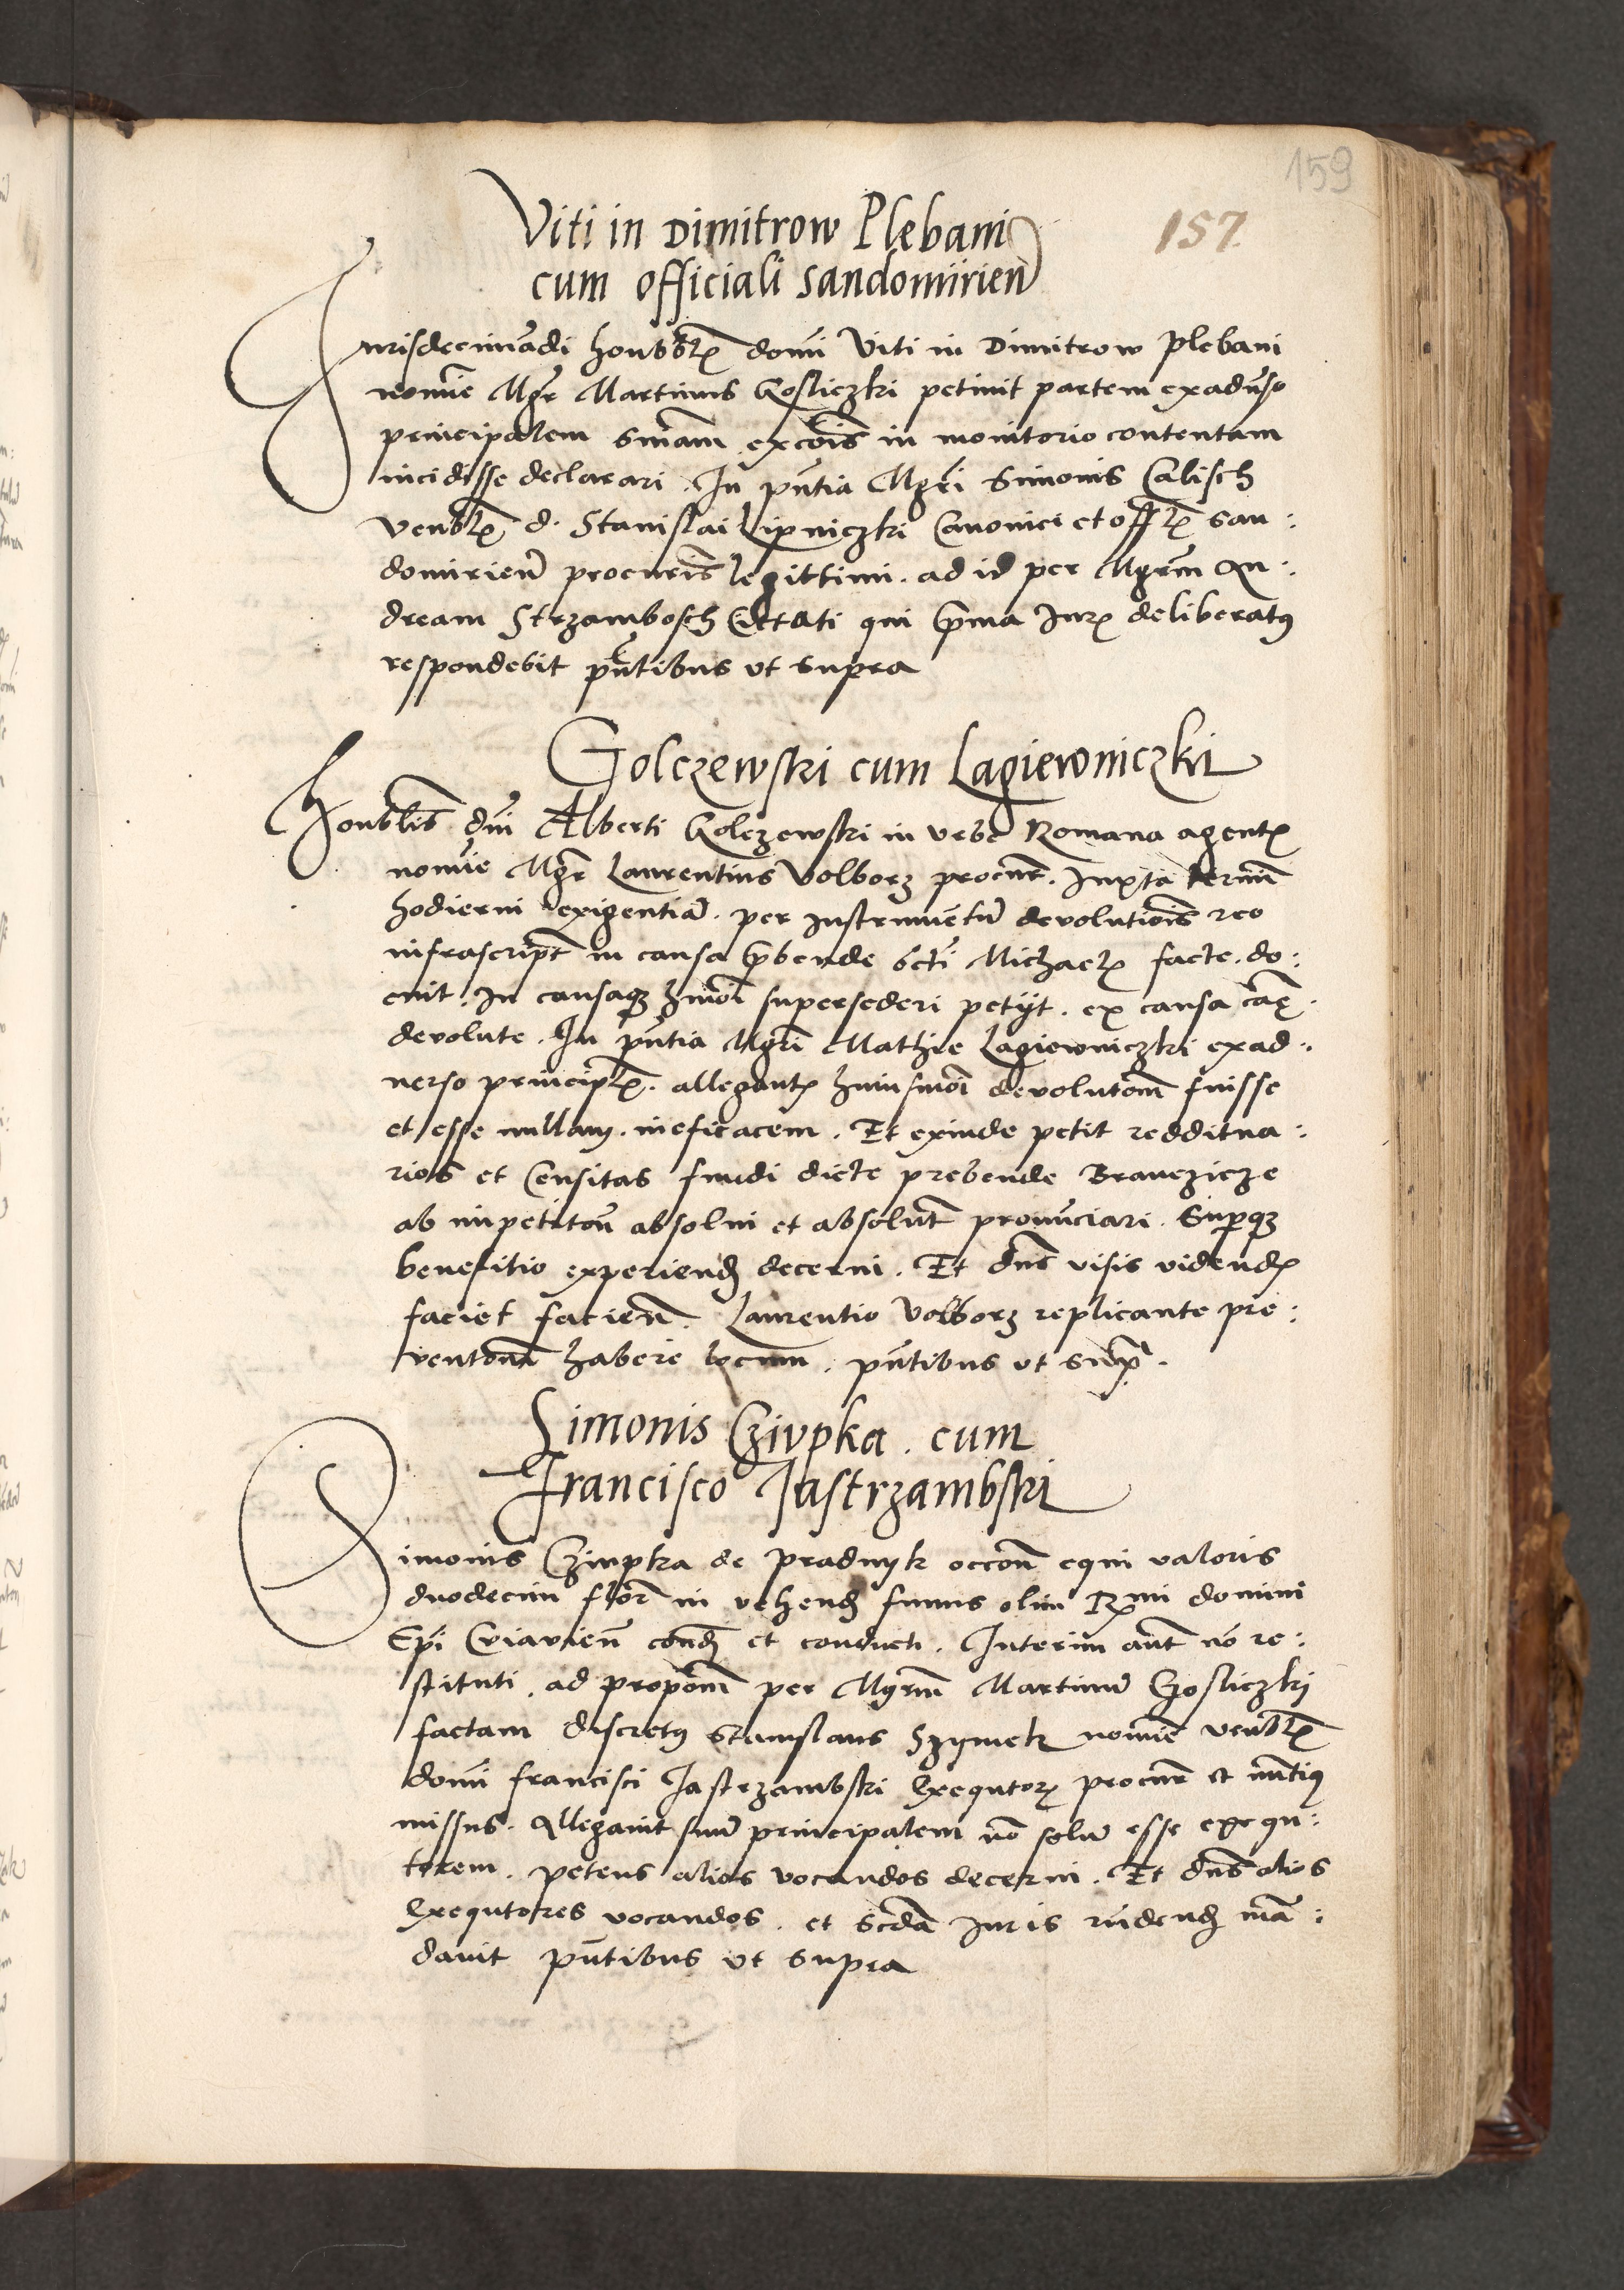 159
157.
Viti in Dimitrow Plebani
cum officiali Sandomirien̄
Jurisdecimādi honōbꝉꝫ domī Viti in Dimitrow Plebani
nomīe Mgr̄ Martinus Gosliczki petiuit partem exadūso
principalem sn̄iam excōīs in monitorio contentam
incidisse declarari. In pn̄tia Mgr̄i Simonis Calisch
venbꝉꝫ d. Stanislai Lipniczki Canonici et offꝉꝫ San:
domirien̄ procur̄is legittimi. ad id per Mgr̄m An:
dream Strzambosch Citati qui p̄ma Jurꝫ deliberatꝰ
respondebit pn̄tibus vt supra
Golczewski cum Lagiewniczki
Honōblīs dn̄i Alberti Golczewski in vrbe Romana agentꝫ
nomīe Mgr̄ Laurentius Volborz procur̄. Juxta termīi
hodierni exigentiā. per Instrumentū devolutiōis reo
infrascript̄ in causa p̄bende Scti Michaelꝫ facte. do:
cuit. In causaqꝫ hm̄oi supersederi petijt. ex causa cāę
devolute. In pn̄tia Mgr̄i Mathie Lagiewniczki exad:
uerso principꝉꝫ. allegantꝫ huiusmōi devolutōnē fuisse
et esse nullam. ineficacem. Et exinde petit redditua:
rios et Censitas fundi dicte prebende Branczicze
ab impetitōn absolui et absolut̄ pronūciari. Supqꝫ
benefitio experiendꝫ decerni. Et dn̄s visis videndꝫ
faciet facien̄. Laurentio Volborz replicante pre:
ventōnē habere locum. pn̄tibus vt sup̄.
Simonis Czivpka. cum
Francisco Jastrzambski
Simonis Czivpka de Pradnyk occōn̄ equi valoris
duodecim flor̄ in vehendꝫ funus olim R̄mi domini
Epī Cuiavien̄ condꝫ et conducti. Interim aūt nō re:
stituti. ad propōnē per Mgr̄m Martinū Gosliczki
factam discretꝰ Stanislaus Szymek nomīe venbꝉꝫ
domī francisci Jastrzambski Exequtorꝫ procur̄ et nūtiꝰ
missus. Allegauit suū principalem nō solū esse exequ:
torem. petens alios vocandos decerni. Et dn̄s alios
Exequtores vocandos. et scdā iuris videndꝫ mā:
dauit pn̄tibus vt supra